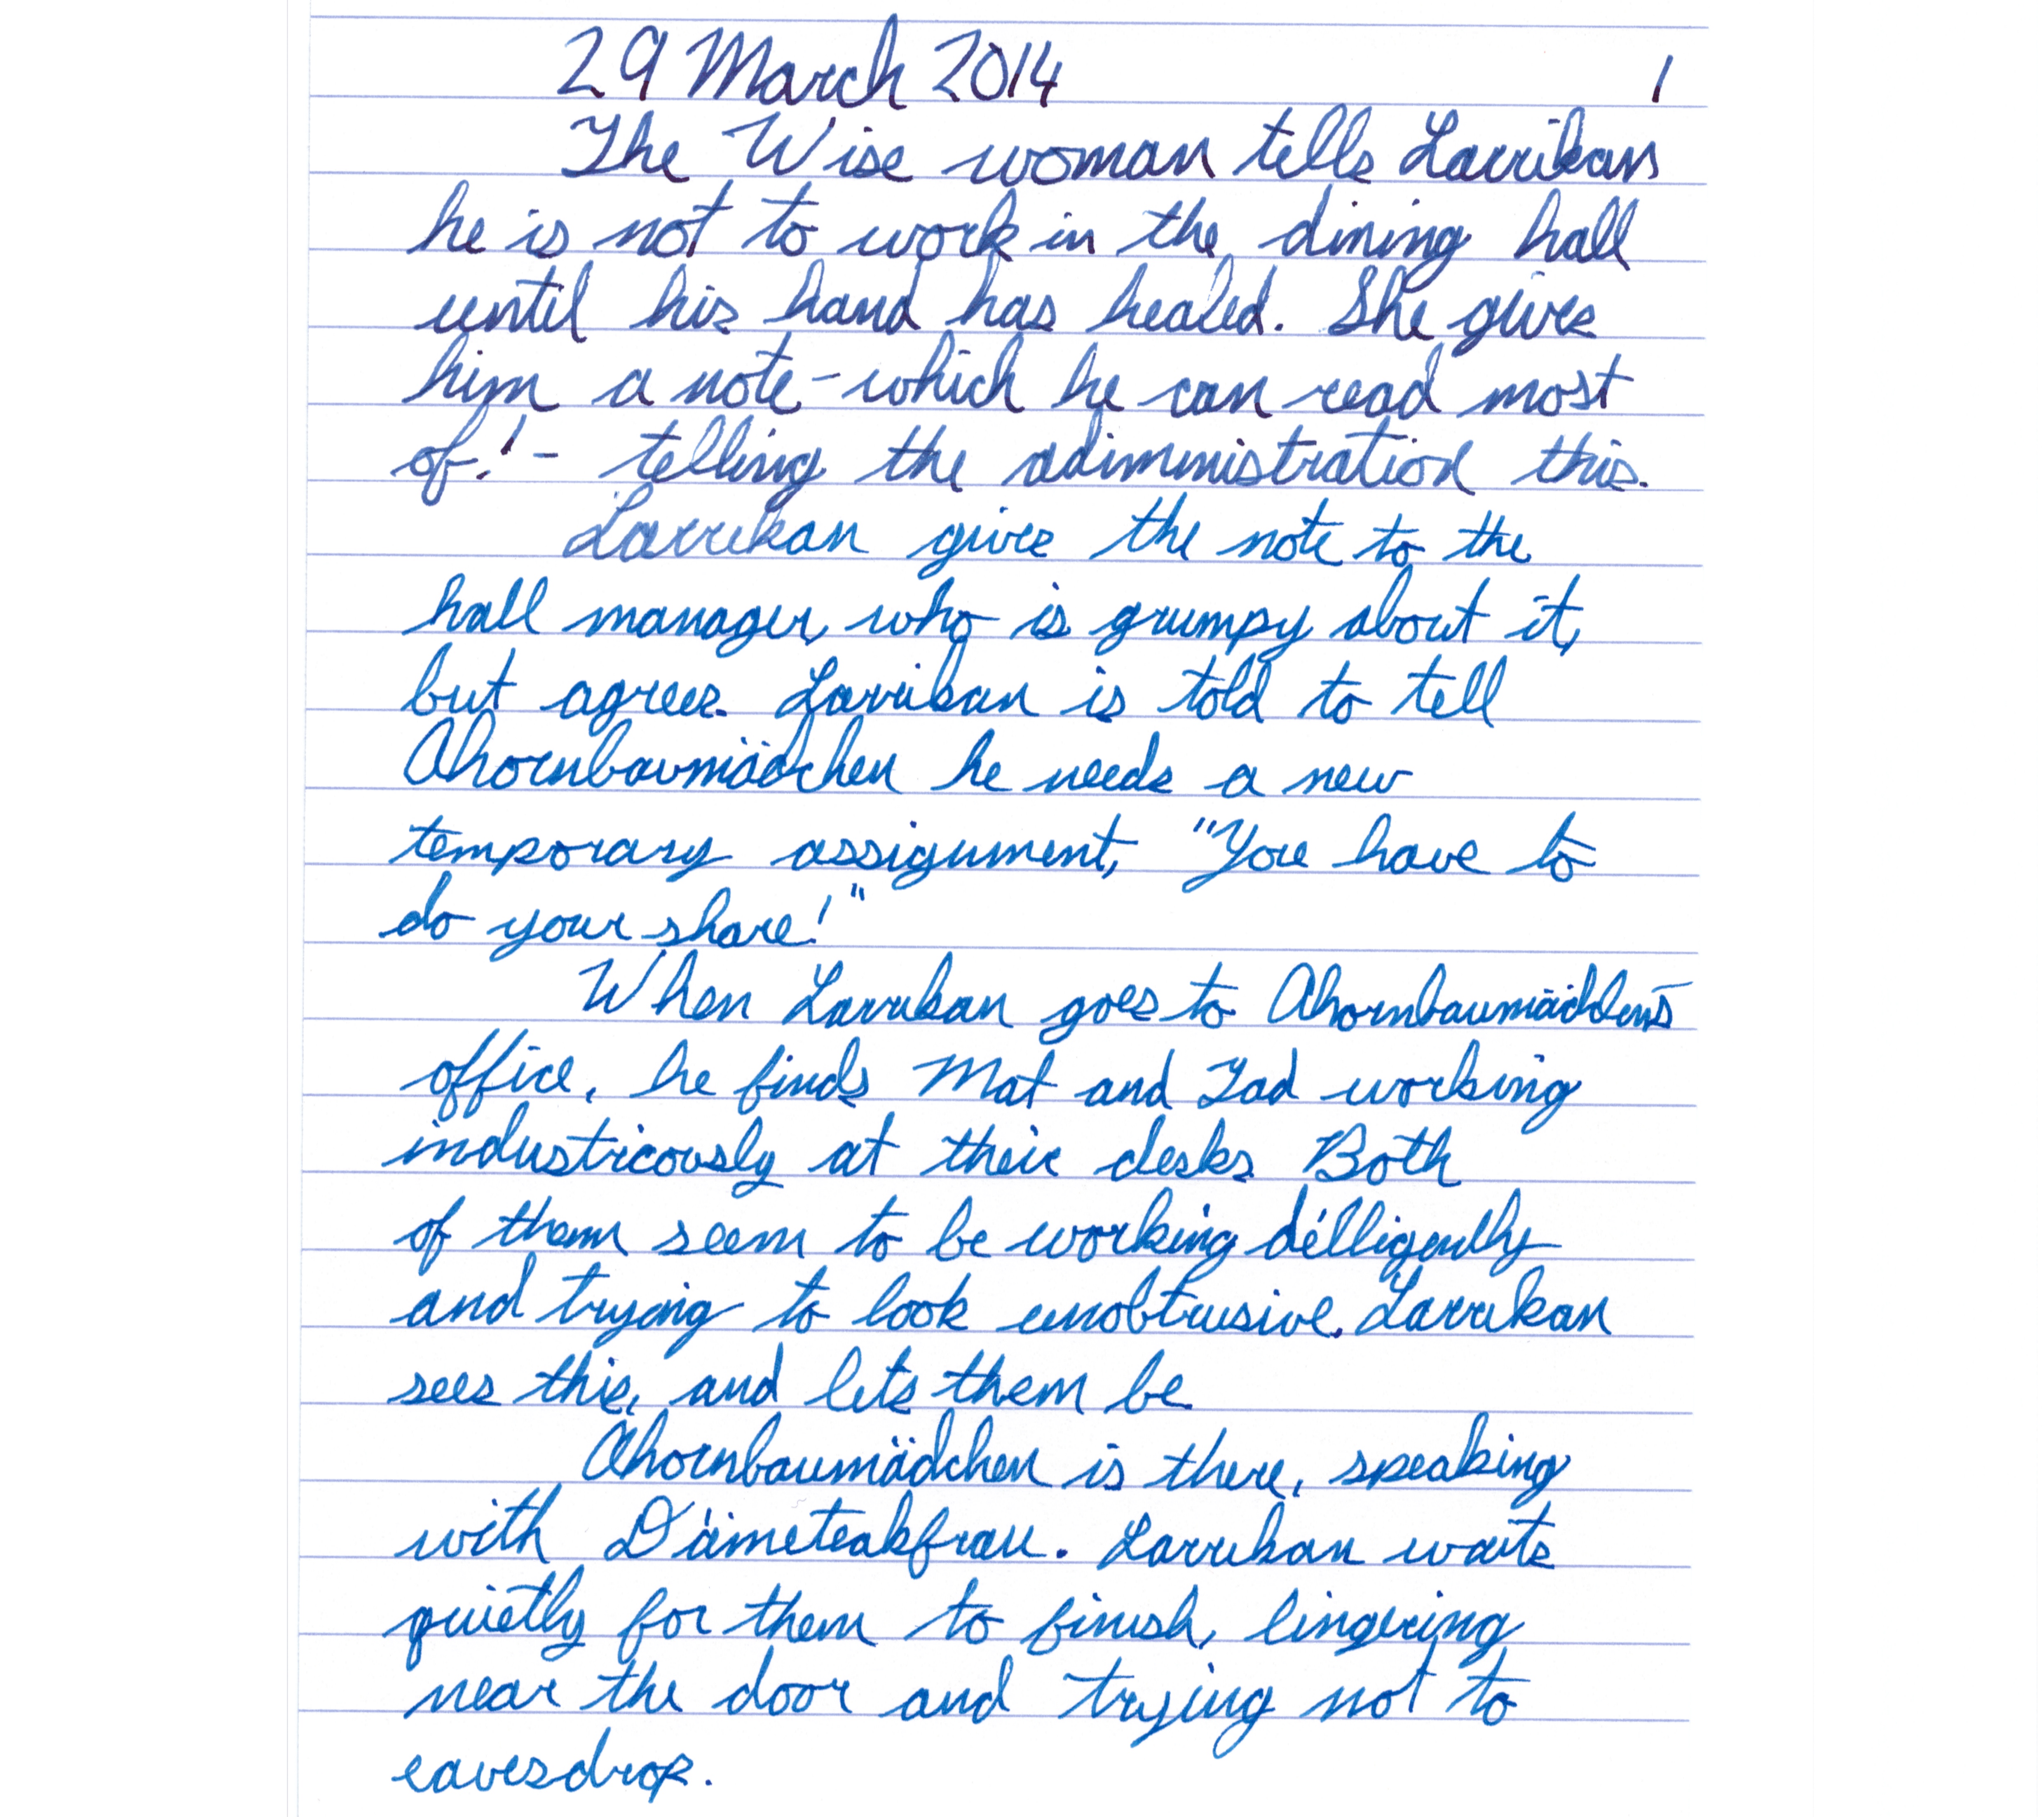 29 March 2014 1
The Wise woman tells Larrikan
he is not to work in the dining hall
until his hand has healed. She gives
him a note - which he can read most
of! - telling the adiministration this.
Larrikan gives the note to the
hall manager, who is grumpy about it,
but agrees. Larrikan is told to tell
Ahornbaumädchen he needs a new
temporary assignment, "You have to
do your share!"
When Larrikan goes to Ahornbaumädchen's
office, he finds Mat and Tad working
industriously at their desks. Both
of them seem to be working délligently
and trying to look unobtrusive. Larrikan
sees this, and lets them be.
Ahornbaumädchen is there, speaking
with Dämeteakfrau. Larrikan waits
quietly for them to finish, lingering
near the door and trying not to
eavesdrop.